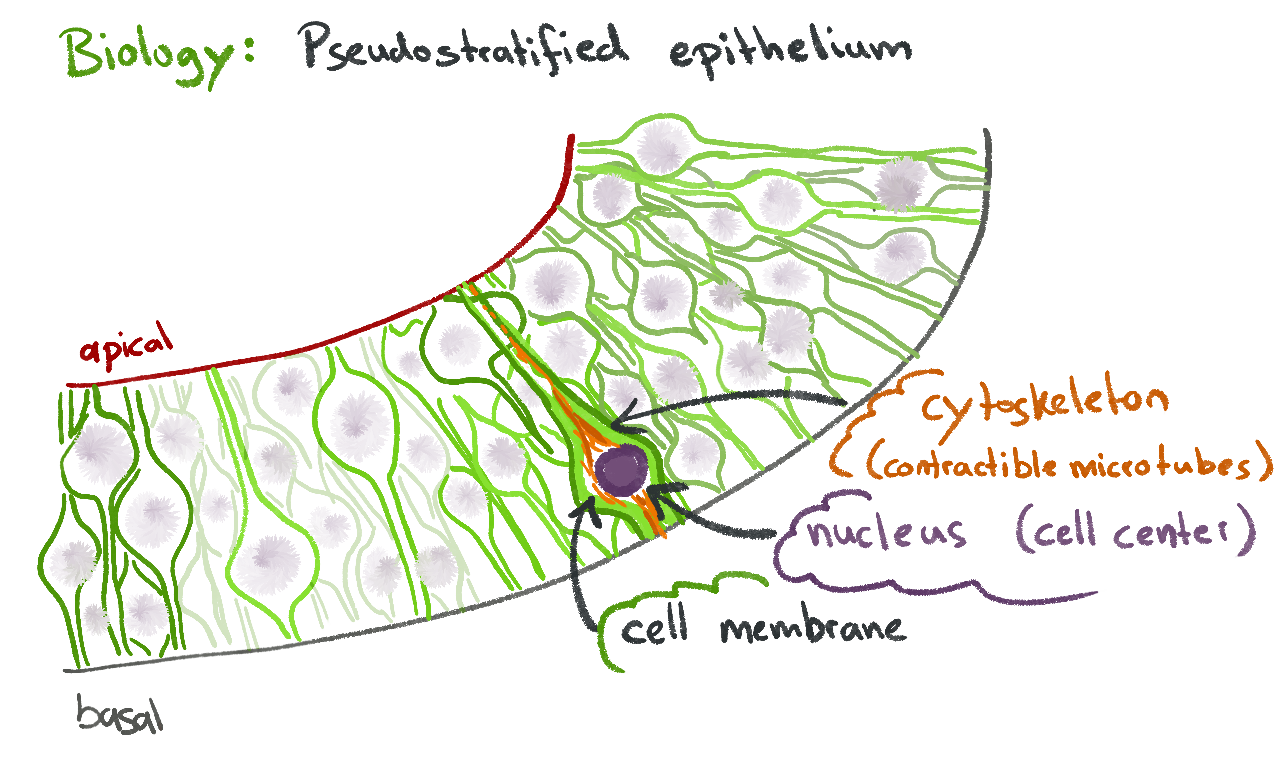 Biology: Pseudostratified epithelium
apical
cytoskeleton
(contractible microtubes)
nucleus (cell center)
cell membrane
basal